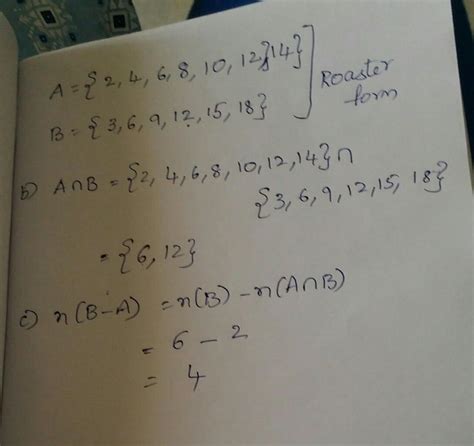 A = {2, 4, 6, 8, 10, 12, 14}
B = {3, 6, 9, 12, 15, 18}
Roaster form
b) A∩B = {2, 4, 6, 8, 10, 12, 14} ∩
{3, 6, 9, 12, 15, 18}
= {6, 12}
c) n(B-A) = n(B) - n(A∩B)
= 6 - 2
= 4